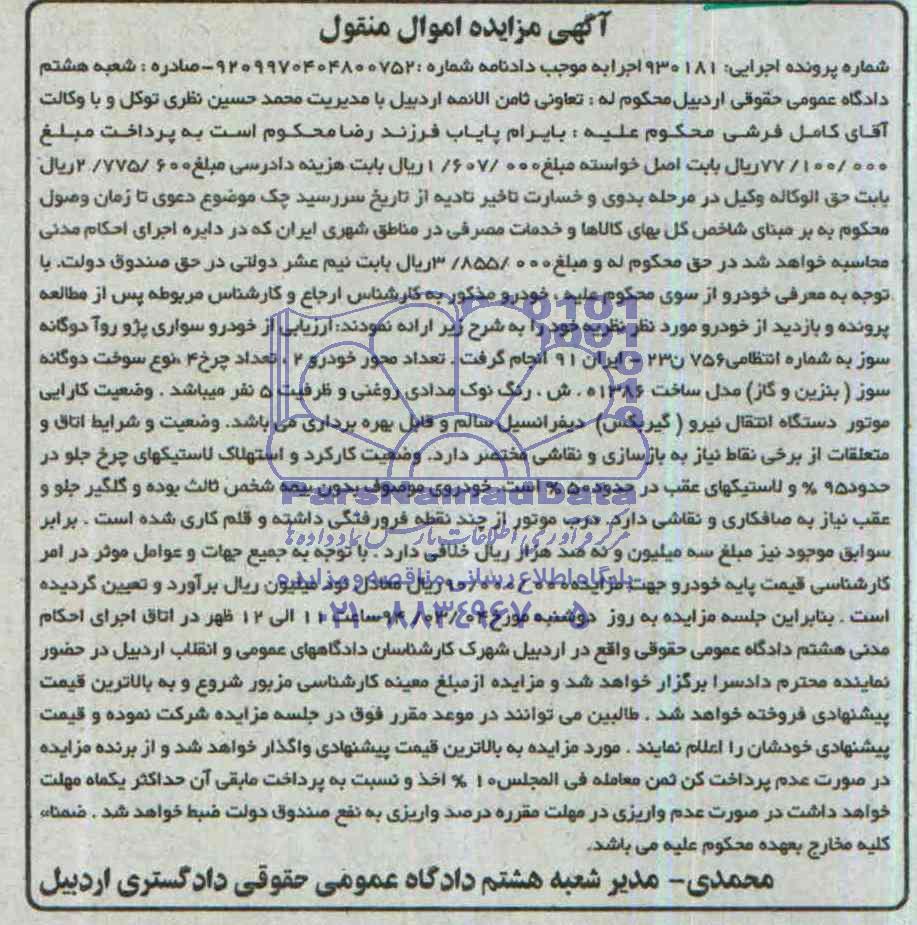 آگهی مزایده اموال منقول
شماره پرونده اجرایی: ۹۳۰۱۸۱ اجرا به موجب دادنامه شماره :۹۲۰۹۹۷۰۴۰۴۸۰۰۷۵۲-صادره : شعبه هشتم
دادگاه عمومی حقوقی اردبیل محکوم له : تعاونی ثامن الائمه اردبیل با مدیریت محمد حسین نظری توکل و با وکالت
آقای کامل فرشی محکوم علیه : بایرام پایاب فرزند رضا محکوم است به پرداخت مبلغ
۷۷/۱۰۰/۰۰۰ ریال بابت اصل خواسته مبلغ ۱/۶۰۷/۰۰۰ ریال بابت هزینه دادرسی مبلغ ۲/۷۷۵/۶۰۰ ریال
بابت حق الوکاله وکیل در مرحله بدوی و خسارت تاخیر تادیه از تاریخ سررسید چک موضوع دعوی تا زمان وصول
محکوم به بر مبنای شاخص کل بهای کالاها و خدمات مصرفی در مناطق شهری ایران که در دایره اجرای احکام مدنی
محاسبه خواهد شد در حق محکوم له و مبلغ ۳/۸۵۵/۰۰۰ ریال بابت نیم عشر دولتی در حق صندوق دولت. با
توجه به معرفی خودرو از سوی محکوم علیه ، خودرو مذکور به کارشناس ارجاع و کارشناس مربوطه پس از مطالعه
پرونده و بازدید از خودرو مورد نظر نظریه خود را به شرح زیر ارائه نمودند: ارزیابی از خودرو سواری پژو روآ دوگانه
سوز به شماره انتظامی ۷۵۶ ن ۲۳ - ایران ۹۱ انجام گرفت . تعداد محور خودرو ۲ ، تعداد چرخ ۴ ،نوع سوخت دوگانه
سوز ( بنزین و گاز) مدل ساخت ۱۳۸۶ ه . ش ، رنگ نوک مدادی روغنی و ظرفیت ۵ نفر میباشد . وضعیت کارایی
موتور دستگاه انتقال نیرو ( گیربکس) دیفرانسیل سالم و قابل بهره برداری می باشد. وضعیت و شرایط اتاق و
متعلقات از برخی نقاط نیاز به بازسازی و نقاشی مختصر دارد. وضعیت کارکرد و استهلاک لاستیکهای چرخ جلو در
حدود ۹۵ % و لاستیکهای عقب در حدود ۵۰ % است. خودروی موصوف بدون بیمه شخص ثالث بوده و گلگیر جلو و
عقب نیاز به صافکاری و نقاشی دارد. درب موتور از چند نقطه فرورفتگی داشته و قلم کاری شده است . برابر
سوابق موجود نیز مبلغ سه میلیون و نه صد هزار ریال خلافی دارد . با توجه به جمیع جهات و عوامل موثر در امر
کارشناسی قیمت پایه خودرو جهت مزایده ۹۰/۰۰۰/۰۰۰ ریال معادل نود میلیون ریال برآورد و تعیین گردیده
است . بنابراین جلسه مزایده به روز دوشنبه مورخ ۹۴/۰۳/۰۴ ساعت ۱۱ الی ۱۲ ظهر در اتاق اجرای احکام
مدنی هشتم دادگاه عمومی حقوقی واقع در اردبیل شهرک کارشناسان دادگاههای عمومی و انقلاب اردبیل در حضور
نماینده محترم دادسرا برگزار خواهد شد و مزایده از مبلغ معینه کارشناسی مزبور شروع و به بالاترین قیمت
پیشنهادی فروخته خواهد شد . طالبین می توانند در موعد مقرر فوق در جلسه مزایده شرکت نموده و قیمت
پیشنهادی خودشان را اعلام نمایند . مورد مزایده به بالاترین قیمت پیشنهادی واگذار خواهد شد و از برنده مزایده
در صورت عدم پرداخت کن ثمن معامله فی المجلس ۱۰ % اخذ و نسبت به پرداخت مابقی آن حداکثر یکماه مهلت
خواهد داشت در صورت عدم واریزی در مهلت مقرره درصد واریزی به نفع صندوق دولت ضبط خواهد شد . ضمناً
کلیه مخارج بعهده محکوم علیه می باشد.
محمدی- مدیر شعبه هشتم دادگاه عمومی حقوقی دادگستری اردبیل
ParsNamadData
مرکز فرآوری اطلاعات پارس نماد داده ها
پایگاه اطلاع رسانی مناقصه و مزایده
۰۲۱-۸۸۳۴۹۶۷۰-۵